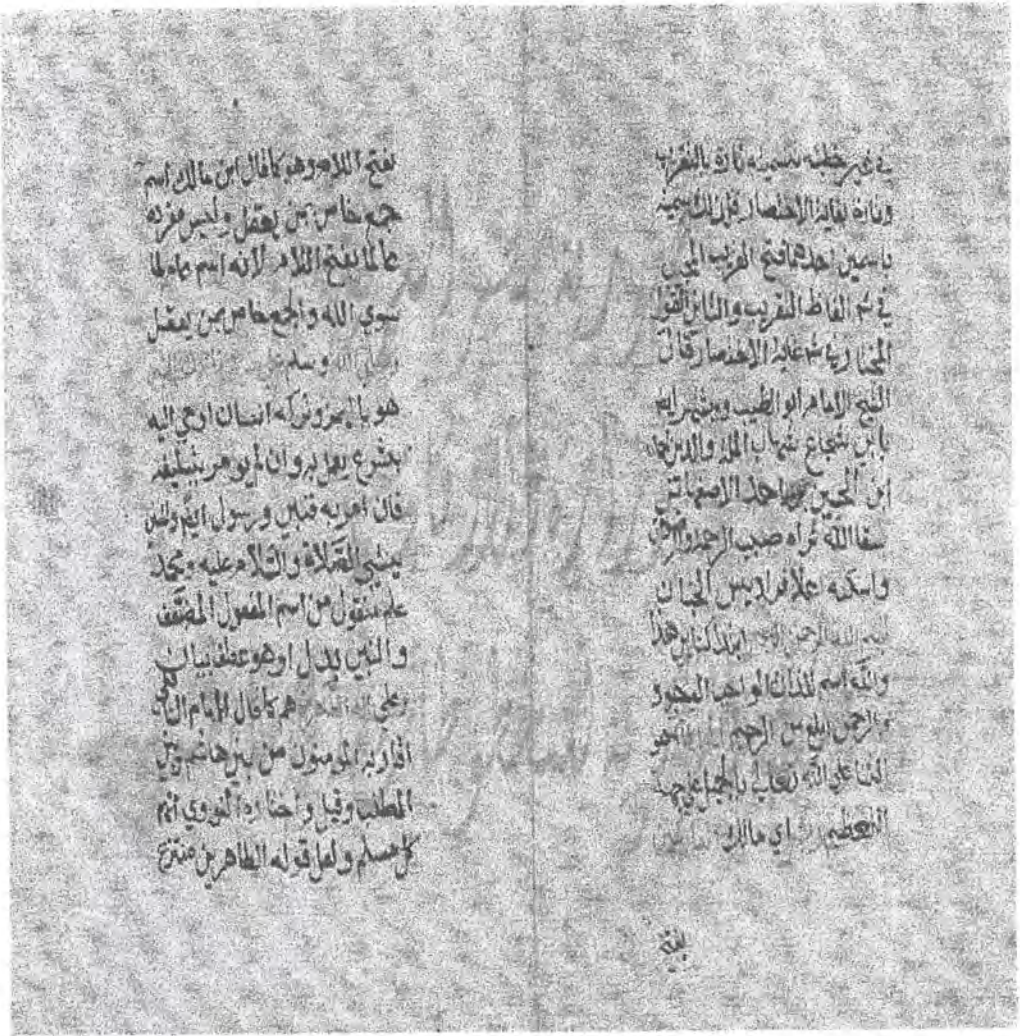 في غير خطبه تسميته تارة بالتقريب
وتارة بغاية الاختصار فلذلك سميته
باسمين احدهما فتح القريب المجيب
في شرح الفاظ التقريب والثاني القول
المختار في شرح غاية الاختصار قال
الشيخ الامام ابو الطيب ويشتهر ايضا
بابن شجاع شهاب الملة والدين
ابن الحسين بن احمد الاصفهاني
سقا الله ثراه صبيب الرحمة والرضوان
واسكنه علا فراديس الجنان
بسم الله الرحمن الرحيم ابتدا كتابي هذا
والله اسم للذات الواجب الوجود
والرحمن ابلغ من الرحيم الحمد لله هو
الثنا على الله تعالى بالجميل على جهة
التعظيم رب اي مالك العالمين
بفتح
بفتح اللام وهو كما قال ابن مالك اسم
جمع خاص بمن يعقل وليس مفرده
عالما بفتح اللام لانه اسم عام لما
سوى الله والجمع خاص بمن يعقل
وصلى الله وسلم على
هو بالهمز وتركه انسان اوحي اليه
بشرع يعمل به وان لم يومر بتبليغه
فان امر به فنبي ورسول ايضا والمعنى
ينشي الصلاة والسلام عليه ومحمد
علم منقول من اسم المفعول المضعف
والنبي بدل او هو عطف بيان
وعلى اله الطاهرين هم كما قال الامام الشافعي
اقاربه المومنون من بني هاشم وبني
المطلب وقيل واختاره النووي انهم
كل مسلم ولعل قوله الطاهرين منتزع